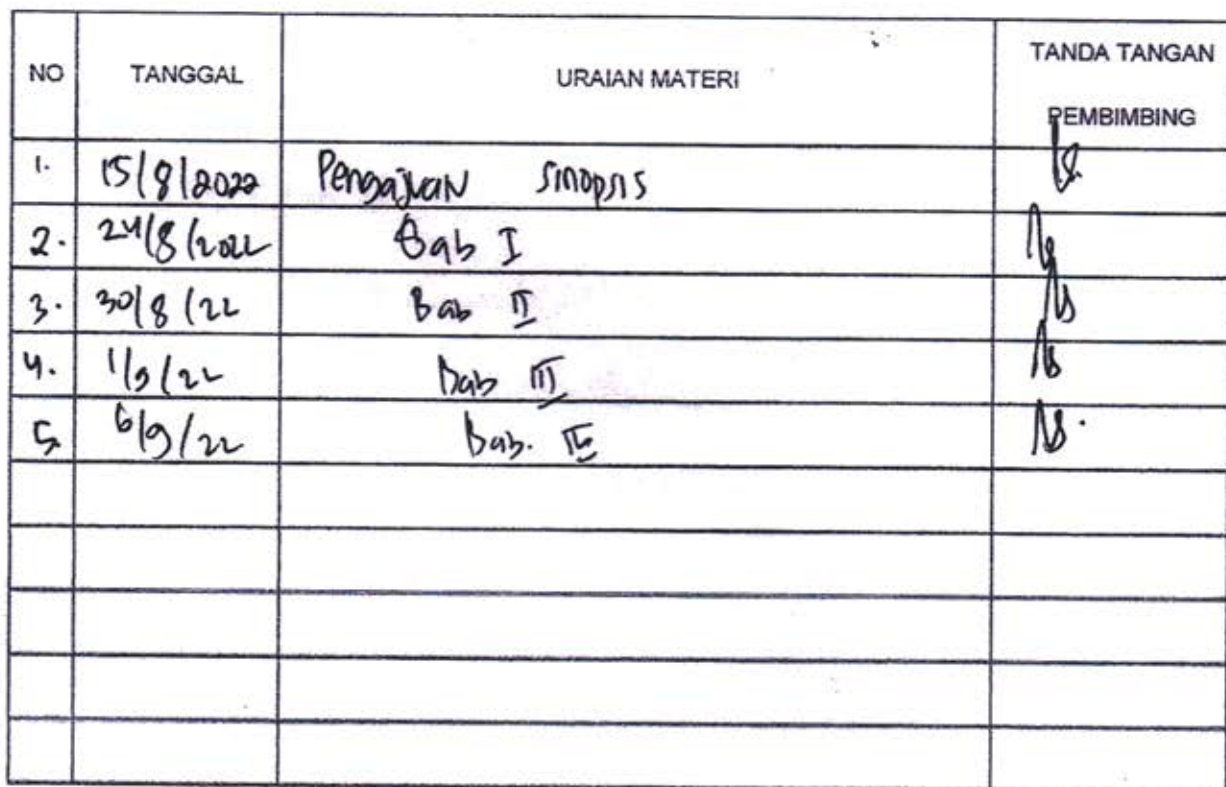 NO TANGGAL URAIAN MATERI TANDA TANGAN PEMBIMBING
1. 15/8/2022 Pengajuan sinopsis
2. 24/8/2022 Bab I
3. 30/8/22 Bab II
4. 1/9/22 Bab III
5 6/9/22 Bab. IV